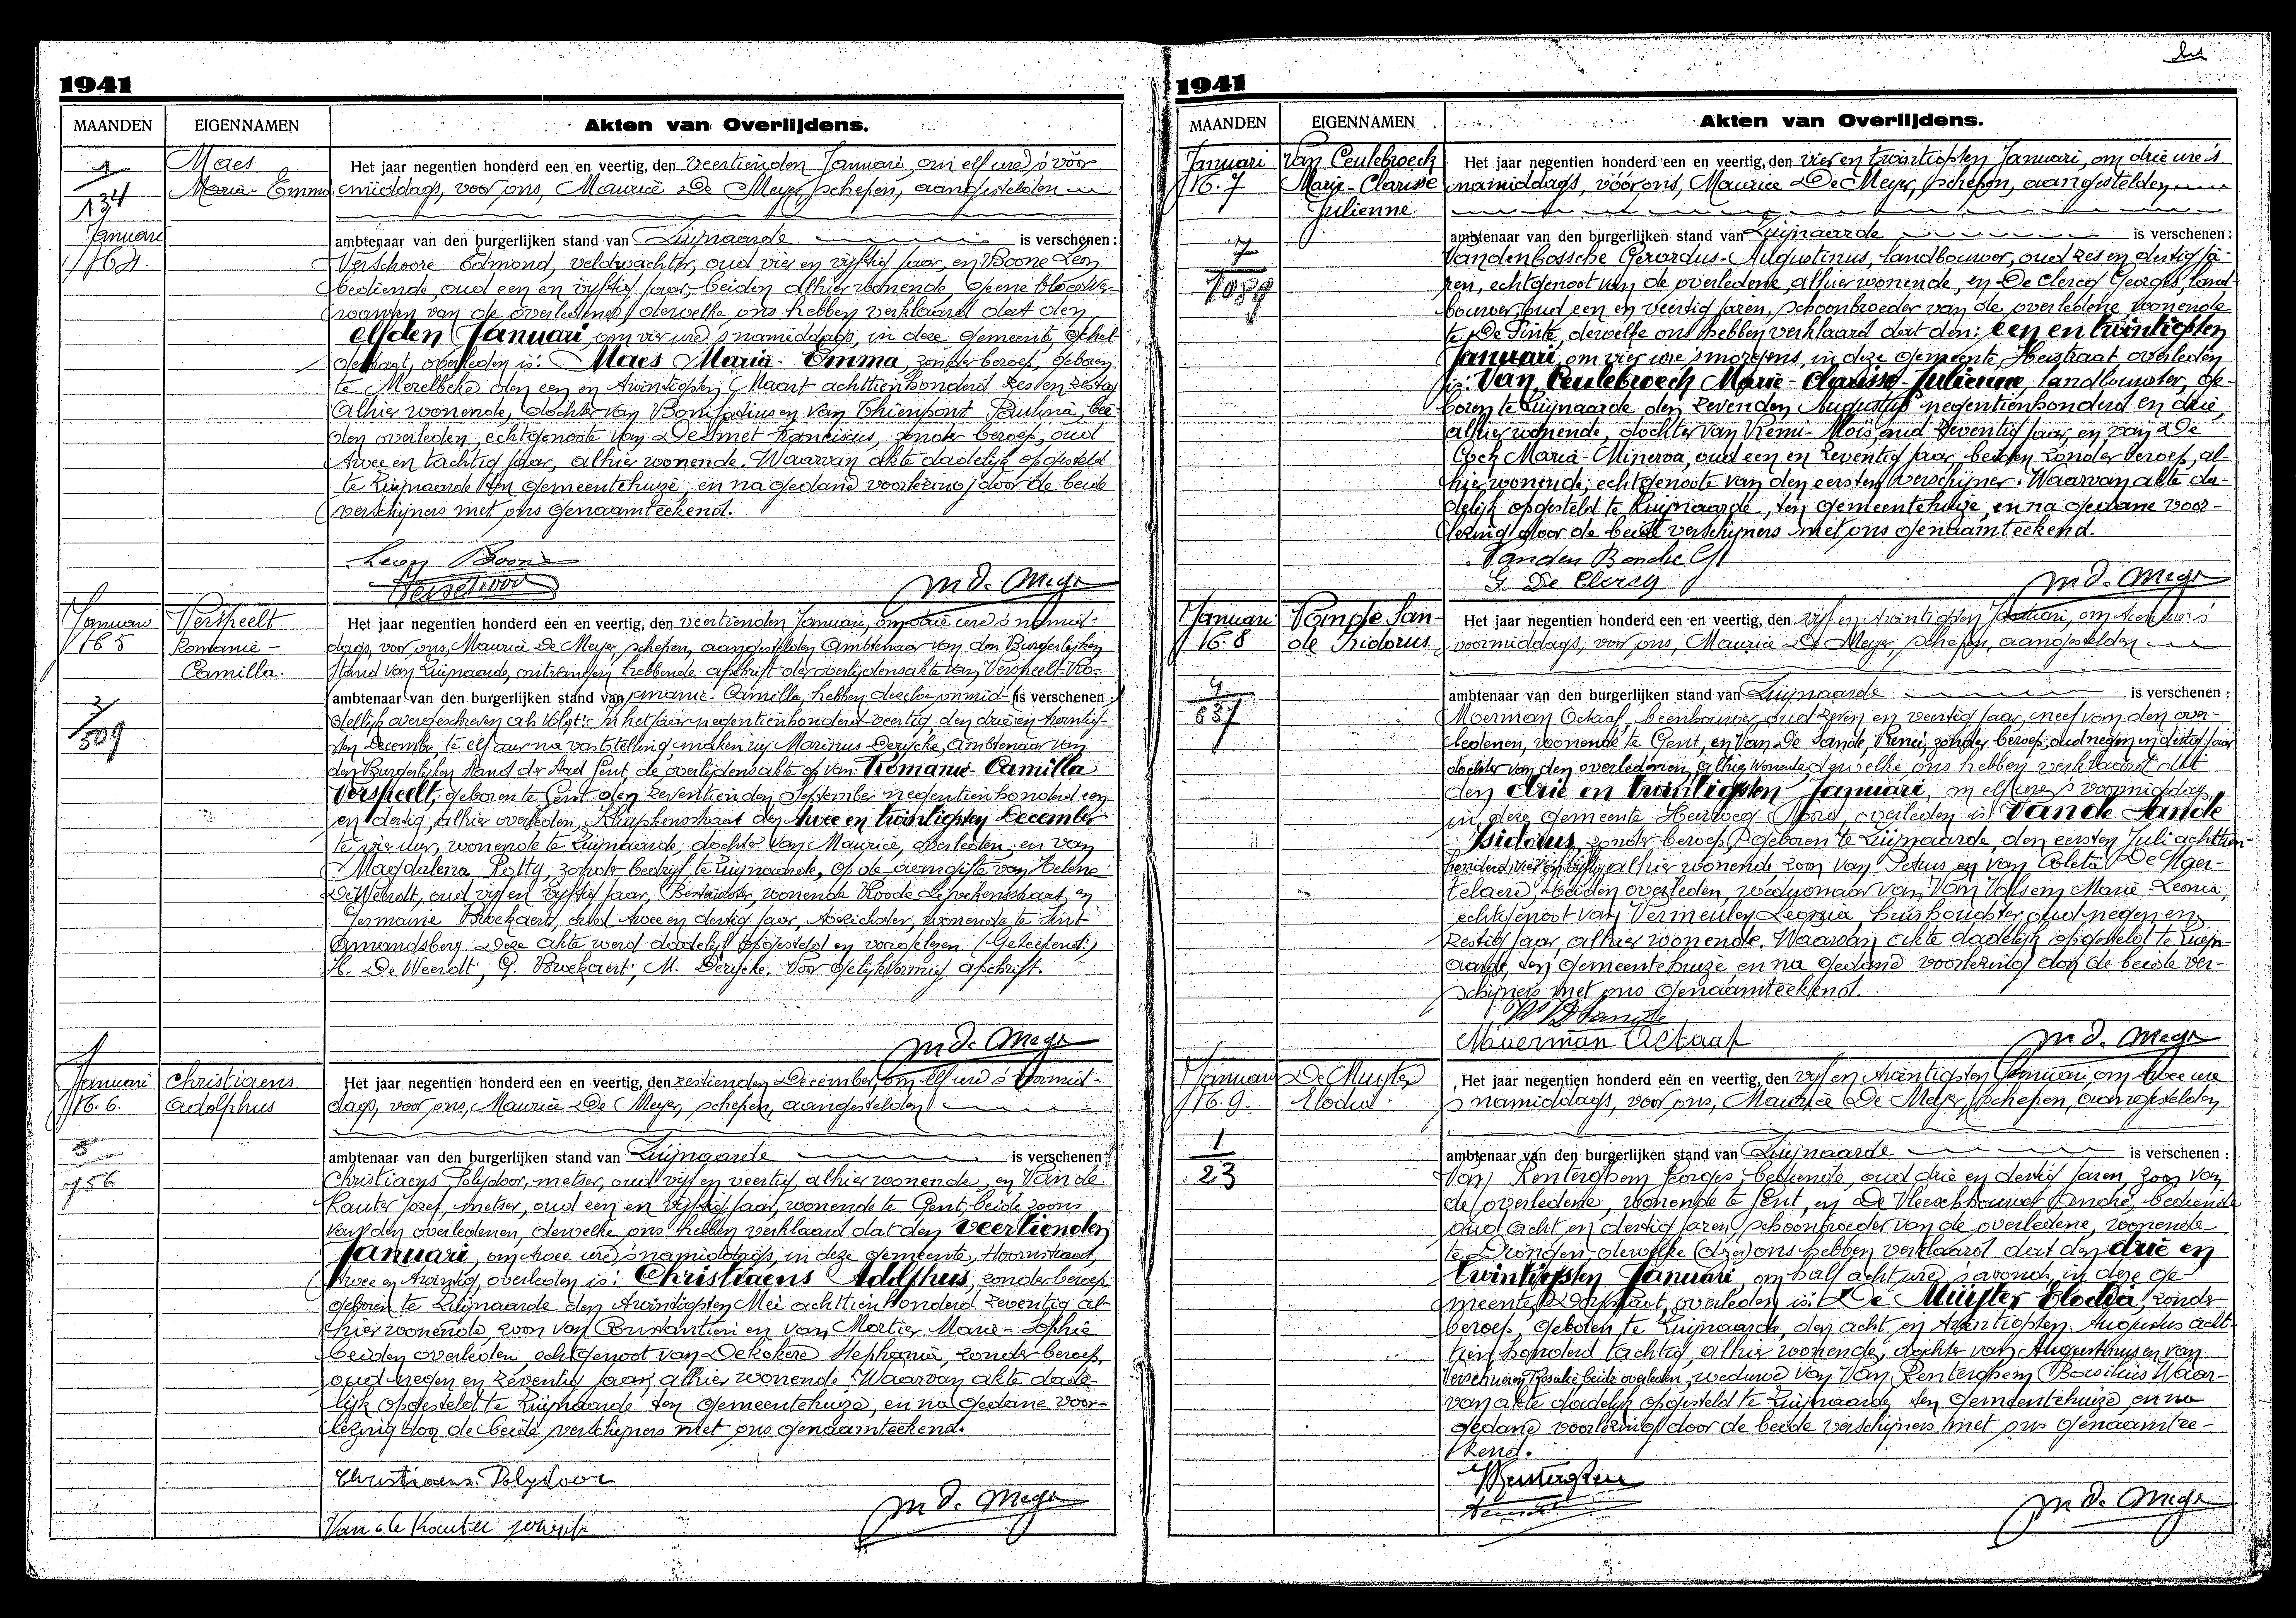 1941
MAANDEN
EIGENNAMEN
Akten van Overlijdens.
1
134
Januari
N° 4.
Maes
Maria-Emma
Het jaar negentien honderd een en veertig, den veertienden Januari, om elf ure 's vóór
middags, voor ons, Maurice De Meyer, schepen, aangestelden
ambtenaar van den burgerlijken stand van Zwijnaarde is verschenen:
Verschoore Edmond, veldwachter, oud vier en vijftig jaar, en Boone Leon
bediende, oud een en vijftig jaar, beiden alhier wonende, geene bloedver-
wanten van de overledene, dewelke ons hebben verklaard dat den
elfden Januari, om vier ure 's namiddags, in deze gemeente,
overleden is: Maes Maria-Emma, zonder beroep, geboren
te Merelbeke den een en twintigsten Maart achttienhonderd zes en zestig
alhier wonende, dochter van Bonifacius en Van Thienpont Paulina, bei-
den overleden, echtgenoote van De Smet Franciscus, zonder beroep, oud
twee en tachtig jaar, alhier wonende. Waarvan akte dadelijk opgesteld
te Zwijnaarde ten gemeentehuize, en na gedane voorlezing door de beide
verschijners met ons genaamteekend.
Leon Boone
M. De Meyer
Januari
N° 5
2
509
Verspeelt
Romanie-
Camilla.
Het jaar negentien honderd een en veertig, den veertienden Januari, om drie ure 's namid-
dags, voor ons, Maurice De Meyer, schepen, aangestelden Ambtenaar van den Burgerlijken
Stand van Zwijnaarde, ontvangen hebbende afschrift der overlijdensakte van Verspeelt Ro-
ambtenaar van den burgerlijken stand van manie-Camilla, hebben dezelve onmid- is verschenen:
dellijk overgeschreven als volgt: In het jaar negentienhonderd veertig, den drie en twintig-
sten December, te elf uur na vaststelling, maken wij Marinus Derycke, Ambtenaar van
den Burgerlijken Stand der Stad Gent, de overlijdensakte op van: Romanie-Camilla
Verspeelt, geboren te Gent den zeventienden September negentienhonderd een
en dertig, alhier overleden, Kluyskensstraat den twee en twintigsten December
te vier uur, wonende te Zwijnaarde, dochter van Maurice, overleden, en van
Magdalena Rotty, zonder bedrijf te Zwijnaarde, op de aangifte van Helena
De Weerdt, oud vijf en vijftig jaar, Bestuurster, wonende Roode Lijvekensstraat, en
Germanie Broekaert, oud twee en dertig jaar, wonende te Sint
Amandsberg. Deze akte werd dadelijk opgesteld en voorgelezen. (Geteekend:)
H. De Weerdt; G. Broekaert; M. Derycke. Voor gelijkvormig afschrift.
M. De Meyer
Januari
N° 6.
5
156
Christiaens
Adolphus
Het jaar negentien honderd een en veertig, den zestienden December, om elf ure 's voormid-
dags, voor ons, Maurice De Meyer, schepen, aangestelden
ambtenaar van den burgerlijken stand van Zwijnaarde is verschenen:
Christiaens Polydoor, metser, oud vijf en veertig, alhier wonende, en Van de
Kauter Jozef, metser, oud een en vijftig jaar, wonende te Gent, beide zoons
van den overledenen, dewelke ons hebben verklaard dat den veertienden
Januari, om twee ure 's namiddags, in deze gemeente, Hoornstraat,
twee en twintig, overleden is: Christiaens Adolphus, zonder beroep,
geboren te Zwijnaarde den twintigsten Mei achttienhonderd zeventig, al-
hier wonende, zoon van Constantien en van Mortier Marie-Sophie
beiden overleden, echtgenoot van Dekokere Stephania, zonder beroep,
oud negen en zeventig jaar, alhier wonende. Waarvan akte dade-
lijk opgesteld te Zwijnaarde ten gemeentehuize, en na gedane voor-
lezing door de beide verschijners met ons genaamteekend.
Christiaens Polydoor
Van de Kauter Joseph
M. De Meyer
1941
MAANDEN
EIGENNAMEN
Akten van Overlijdens.
Januari
N° 7
7
1089
Van Ceulebroeck
Marie-Clarisse
Julienne.
Het jaar negentien honderd een en veertig, den vier en twintigsten Januari, om drie ure 's
namiddags, vóór ons, Maurice De Meyer, schepen, aangestelden
ambtenaar van den burgerlijken stand van Zwijnaarde is verschenen:
Vandenbossche Gerardus-Augustinus, landbouwer, oud zes en dertig ja-
ren, echtgenoot van de overledene, alhier wonende, en De Clercq Georges, land-
bouwer, oud een en veertig jaren, schoonbroeder van de overledene, wonende
te De Pinte, dewelke ons hebben verklaard dat den: een en twintigsten
Januari, om vier ure 's morgens, in deze gemeente, Heistraat overleden
is: Van Ceulebroeck Marie-Clarisse-Julienne, landbouwster, ge-
boren te Zwijnaarde den zevenden Augustus negentienhonderd en drie,
alhier wonende, dochter van Remi-Aloïs, oud zeventig jaar, en van De
Cock Maria-Minerva, oud een en zeventig jaar, beiden zonder beroep, al-
hier wonende; echtgenoote van den eersten verschijner. Waarvan akte da-
delijk opgesteld te Zwijnaarde, ten gemeentehuize, en na gedane voor-
lezing door de beide verschijners met ons genaamteekend.
G. De Clercq
M. De Meyer
Januari
N° 8
4
637
Van de San-
de Isidorus
Het jaar negentien honderd een en veertig, den vijf en twintigsten Januari, om tien ure 's
voormiddags, voor ons, Maurice De Meyer, schepen, aangestelden
ambtenaar van den burgerlijken stand van Zwijnaarde is verschenen:
Moerman Octaaf, beenhouwer, oud zeven en veertig jaar, neef van den over-
ledenen, wonende te Gent, en Van De Sande, Irenei, zonder beroep, oud negen en dertig jaar
dochter van den overledenen, alhier wonende, dewelke ons hebben verklaard dat
den drie en twintigsten Januari, om elf ure 's voormiddags,
in deze gemeente Heirweg Noord, overleden is: Van de Sande
Isidorus, zonder beroep, geboren te Zwijnaarde, den eersten Juli achttien
honderd vier en vijftig alhier wonende, zoon van Petrus en van Coleta De Neger-
, beiden overleden, weduwnaar van Van Volsem Marie-Leonia,
echtgenoot van Vermeulen Leonia, huishoudster, oud negen en
zestig jaar, alhier wonende. Waarvan akte dadelijk opgesteld te Zwijn-
aarde, ten gemeentehuize, en na gedane voorlezing door de beide ver-
schijners met ons genaamteekend.
Moerman Octaaf
M. De Meyer
Januari
N° 9.
1
23
De Muyter
Elodia.
Het jaar negentien honderd een en veertig, den vijf en twintigsten Januari, om twee ure
's namiddags, voor ons, Maurice De Meyer, schepen, aangestelden
ambtenaar van den burgerlijken stand van Zwijnaarde is verschenen:
Van Renterghem Georges, bediende, oud drie en dertig jaren, zoon van
de overledene, wonende te Gent, en De Vleeschhouwer André, bediende
oud acht en dertig jaren, schoonbroeder van de overledene, wonende
te Drongen, dewelke (deze) ons hebben verklaard dat den drie en
twintigsten Januari, om half acht ure 's avonds, in deze ge-
meente, Dorpstraat, overleden is: De Muyter Elodia, zonder
beroep, geboren te Zwijnaarde, den acht en twintigsten Augustus acht-
tien honderd tachtig, alhier wonende, dochter van Augustinus en van
Verschueren Rosalie beide overleden, weduwe van Van Renterghem Basilius. Waar-
van akte dadelijk opgesteld te Zwijnaarde ten gemeentehuize, en na
gedane voorlezing door de beide verschijners met ons genaamtee-
kend.
M. De Meyer